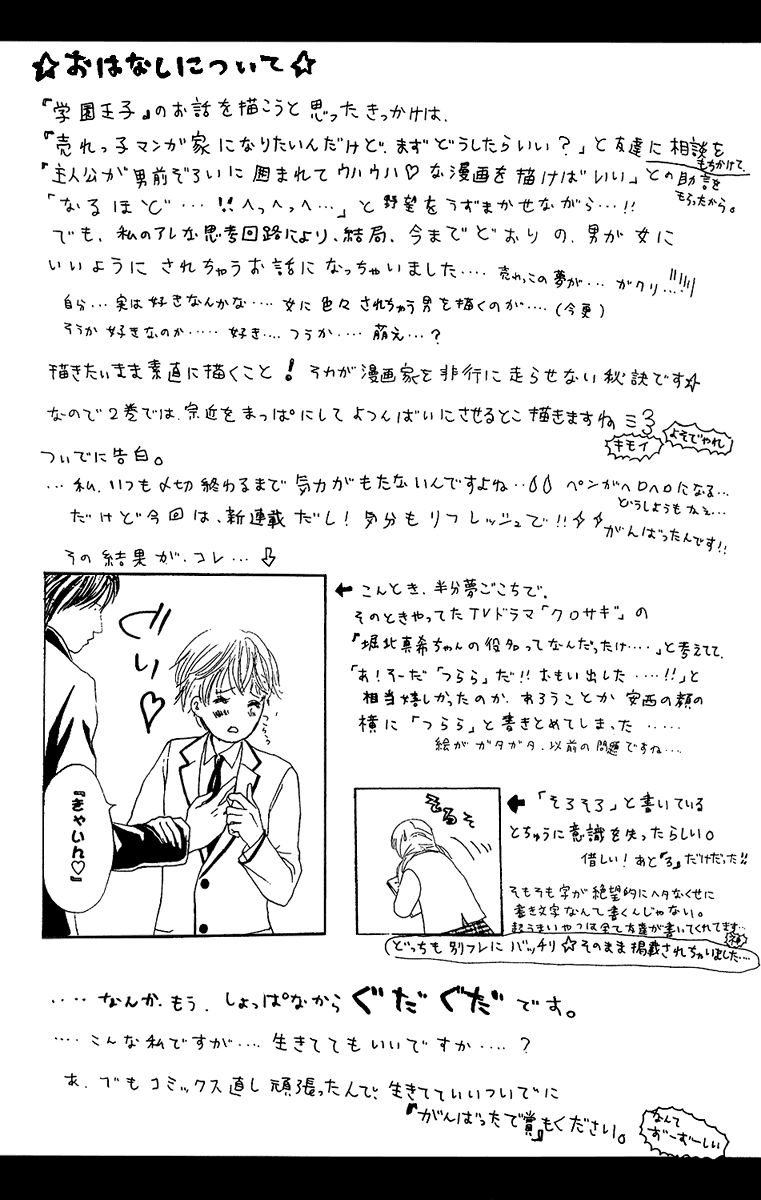 ☆おはなしについて☆
『学園王子』のお話を描こうと思ったきっかけは、
『売れっ子マンガ家になりたいんだけど、まずどうしたらいい？」と友達に相談を
もちかけて、
『主人公が男前ぞろいに囲まれてウハウハ♡な漫画を描けばいい」との助言を
もらったから。
「なるほど…!!へっへっへ…」と野望をうずまかせながら…!!
でも、私のアレな思考回路により、結局、今までどおりの、男が女に
いいようにされちゃうお話になっちゃいました…. 売れっこの夢が… ガクリ…
自分…実は好きなんかな….女に色々されちゃう男を描くのが….(今更)
そうか好きなのか…..好き….つうか….萌え…？
描きたいまま素直に描くこと！それが漫画家を非行に走らせない秘訣です☆
なので2巻では、宗近をまっぱにしてよつんばいにさせるとこ描きますね
キモイ
よそでやれ
ついでに告白。
…私、いつも〆切終わるまで気力がもたないんですよね… ペンがヘロヘロになる…
どうしようもねえ…
だけど今回は、新連載だし！気分もリフレッシュで!!
がんばったんです!!
その結果が、コレ…⇩
ぐい♡
つらら
『きゃいん♡』
←こんとき、半分夢ごこちで、
そのときやってたTVドラマ「クロサギ」の
『堀北真希ちゃんの役名ってなんだったけ….」と考えてて、
「あ！そーだ「つらら」だ!!おもい出した….!!」と
相当嬉しかったのか、あろうことか安西の顔の
横に「つらら」と書きとめてしまった…..
絵がガタガタ、以前の問題ですね….
そろそ
←「そろそろ」と書いている
とちゅうに意識を失ったらしい。
惜しい！あと『ろ』だけだった!!
そもそも字が絶望的にヘタなくせに
書き文字なんて書くんじゃない。
超うまいやつは全て友達が書いてくれてます…
神
どっちも別フレにバッチリ☆そのまま掲載されちゃいました….
….なんか、もう、しょっぱなからぐだぐだです。
….こんな私ですが….生きててもいいですか….？
あ、でもコミックス直し頑張ったんで、生きてていいついでに
『がんばったで賞』もください。
なんて
ずーずーしい